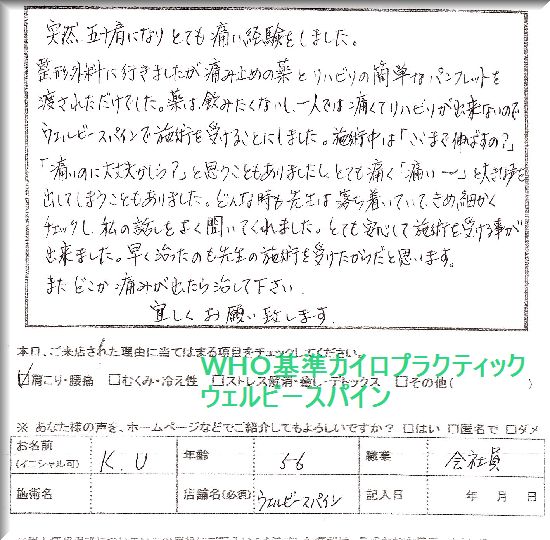 突然、五十肩になりとても痛い経験をしました。
整形外科に行きましたが痛み止めの薬とリハビリの簡単なパンフレットを
渡されただけでした。薬は飲みたくないし、一人では痛くてリハビリが出来ないので
ウェルビースパインで施術を受けることにしました。施術中は「ここまで伸ばすの?」
「痛いのに大丈夫かしら?」と思うこともありましたし、とても痛く「痛いー」と大きな声を
出してしまうこともありました。どんな時も先生は落ち着いていて、きめ細かく
チェックし、私の話しをよく聞いてくれました。とても安心して施術を受ける事が
出来ました。早く治ったのも先生の施術を受けたからだと思います。
またどこか痛みが出たら治して下さい。
宜しくお願い致します。
本日、ご来店された理由に当てはまる項目をチェックしてください。
WHO基準カイロプラクティック
☑肩こり・腰痛 □むくみ・冷え性 □ストレス解消・癒し・デトックス □その他(
ウェルビースパイン
※ あなた様の声を、ホームページなどでご紹介してもよろしいですか? □はい □匿名で □ダメ
お名前 (イニシャル可) K.U 年齢 56 職業 会社員
施術名 店舗名(必須) ウェルビースパイン 記入日 年 月 日